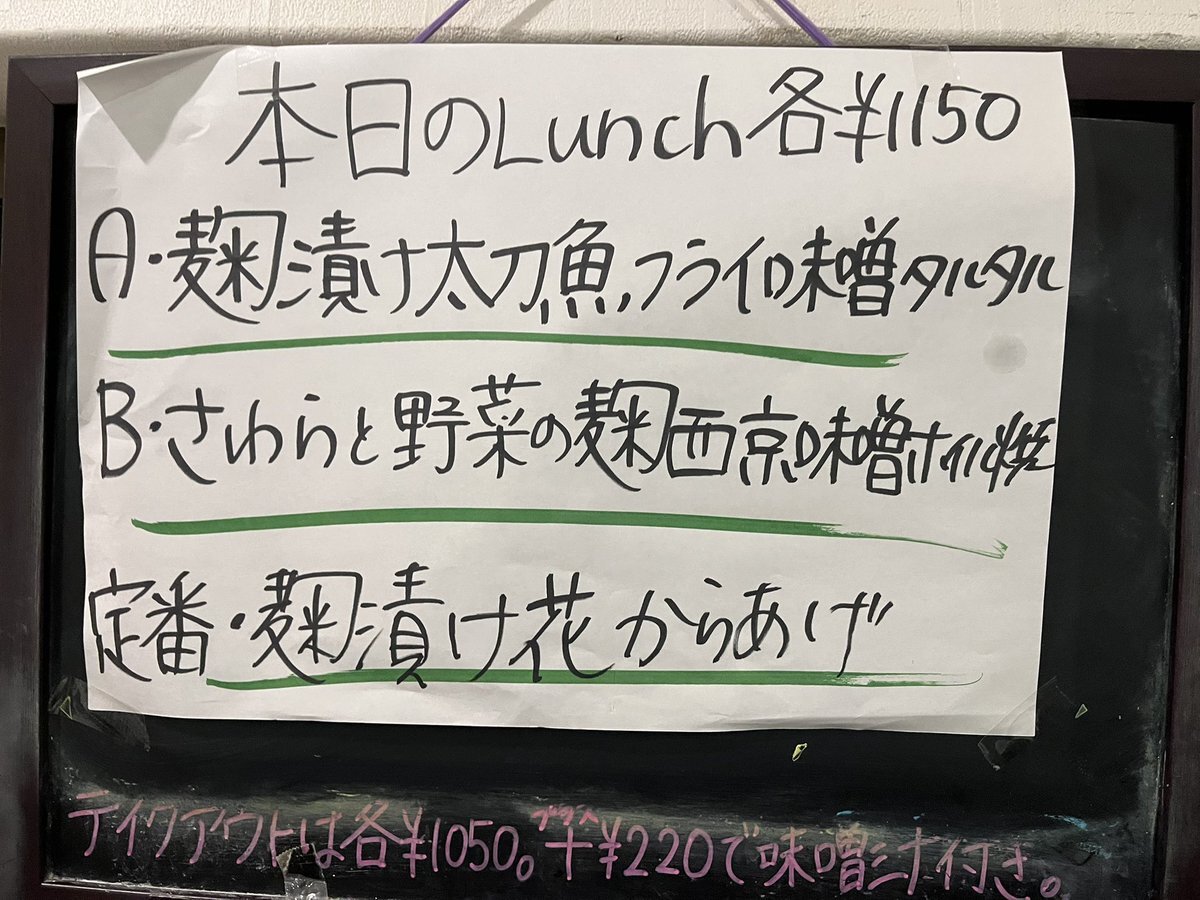 本日のLunch各¥1150
A・麹漬け太刀魚フライ味噌タルタル
B・さわらと野菜の麹西京味噌ホイル焼
定番・麹漬け花からあげ
テイクアウトは各¥1050。プラス+¥220で味噌汁付き。